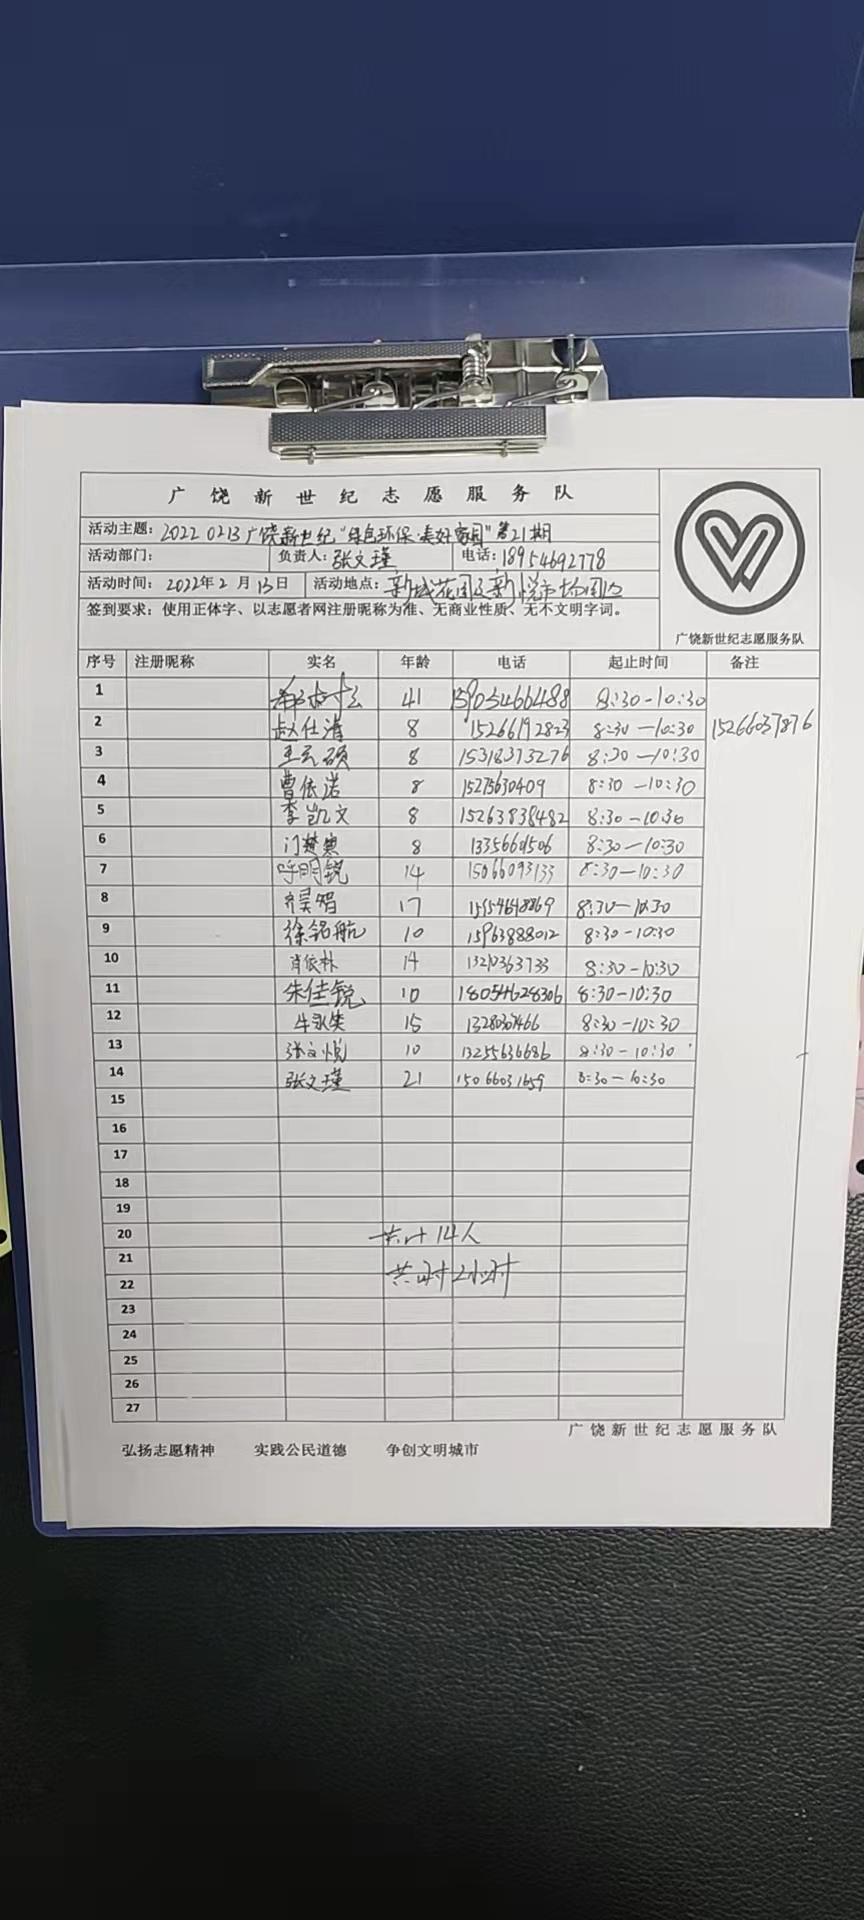 广饶新世纪志愿服务队
活动主题: 2022 0213 广饶新世纪"绿色环保·美好家园"第21期
活动部门: 负责人: 张文瑾 电话: 18954692778
活动时间: 2022年2月13日 活动地点: 新城花园及新悦市场周边
签到要求: 使用正体字、以志愿者网注册昵称为准、无商业性质、无不文明字词。
广饶新世纪志愿服务队
序号 注册昵称 实名 年龄 电话 起止时间 备注
1 41 15905466488 8:30-10:30
2 赵仕清 8 15266192823 8:30-10:30 15266037876
3 王云硕 8 15318373276 8:30-10:30
4 曹依诺 8 15275630409 8:30-10:30
5 李凯文 8 15263838482 8:30-10:30
6 门楚寒 8 8:30-10:30
7 呼明锐 14 15066093133 8:30-10:30
8 齐昊智 17 8:30-10:30
9 徐铭航 10 15963888012 8:30-10:30
10 肖依林 14 13210363733 8:30-10:30
11 朱佳锐 10 18054628306 8:30-10:30
12 15 8:30-10:30
13 张文悦 10 13255636686 8:30-10:30
14 张文瑾 21 15066031659 8:30-10:30
15
16
17
18
19
20 共计14人
21
22 共时2小时
23
24
25
26
27
广饶新世纪志愿服务队
弘扬志愿精神 实践公民道德 争创文明城市